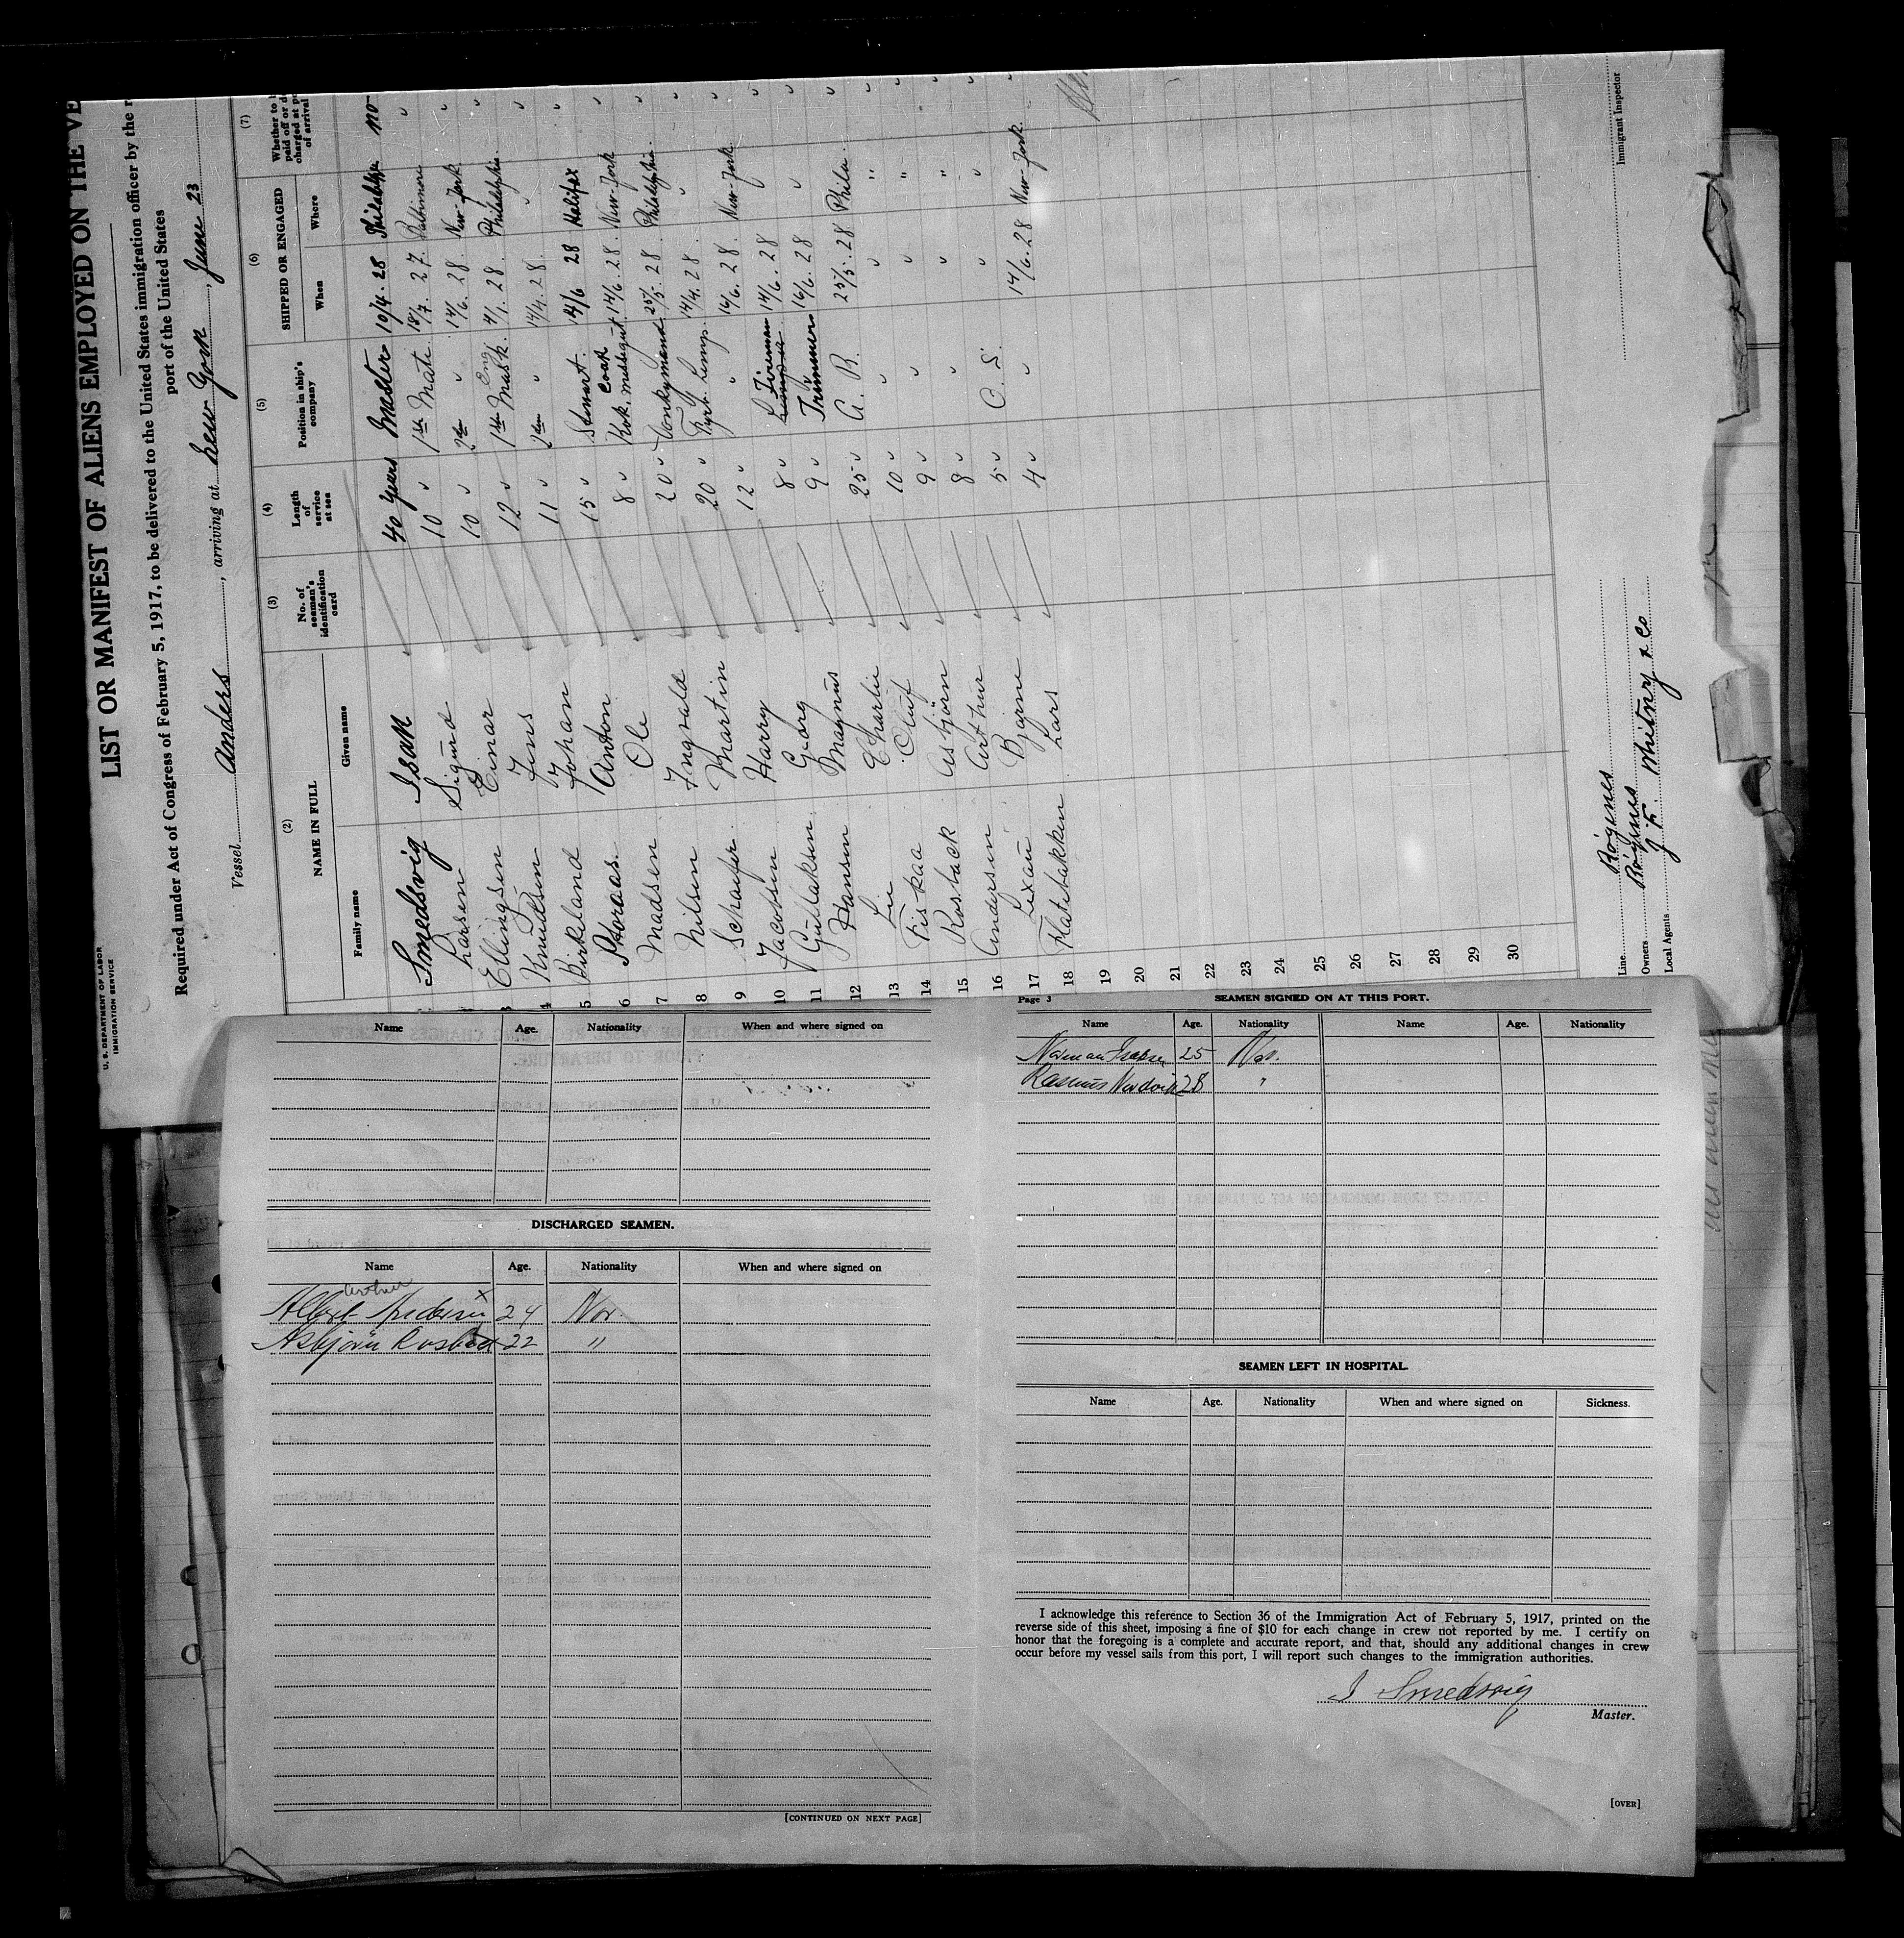 LIST OR MANIFEST OF ALIENS EMPLOYED ON THE VE
U. S. DEPARTMENT OF LABOR
IMMIGRATION SERVICE
Required under Act of Congress of February 5, 1917, to be delivered to the United States immigration officer by the r
port of the United States
Vessel Anders, arriving at New York, June 23
(2) (3) (4) (5) (6) (7)
NAME IN FULL
Family name Given name
No. of seaman's identification card
Length of service at sea
Position in ship's company
SHIPPED OR ENGAGED
When Where
Whether to paid off or charged at of arrival
Smedsvig Isak 40 years Master 10/4. 28 Philadelphia no
Larsen Sigurd 10 " 1ste Mate 18/7. 27. Baltimore "
3 Ellingsen Einar 10 " 2den " 14/6. 28. New-York "
4 Knudsen Jens 12 " 1ste Mask. Eng 4/1. 28. Philadelphia. "
5 Birkeland Johan 11 " 2den " 14/4. 28. " "
6 Storaas. Anton 15 " Stewart. 14/6 28 Halifax "
7 Madsen Ole 8 " Kok. Cook 14/6. 28. New-York "
8 Nilsen Ingvald 20 " Donkymand. 25/5. 28. Philadelphia. "
9 Schaefer. Martin 20 " 14/4. 28. " "
10 Jacobsen Harry 12 " " 16/6. 28. New-York "
11 Gullaksen. Georg 8 " Fireman 14/6. 28 " "
12 Hansen Magnus 9 " Trimmers 16/6. 28. " "
13 Lie Charlie 25 " A. B. 25/5. 28 Phila. "
14 Fiskaa Oluf 10 " " " " "
15 Rosback Asbjörn 9 " " " " "
16 Andersen Arthur 8 " " " " "
17 Lexau Bjarne 5 " O. S. " " "
18 Flatebakken Lars 4 " " 14/6. 28 New-York "
19
20
21
22
23
24
25
26
27
28
29
30
Line Rögenes
Owners Rögenes
Local Agents J F. Whitney & Co
Immigrant Inspector
Name Age. Nationality When and where signed on
DISCHARGED SEAMEN.
Name Age. Nationality When and where signed on
Arthur
Albert Andersen x 24 Nor.
Asbjörn Rosback 22 "
[CONTINUED ON NEXT PAGE]
Page 3
SEAMEN SIGNED ON AT THIS PORT.
Name Age. Nationality Name Age. Nationality
25 Nor.
Rasmus Nordvik 28 "
SEAMEN LEFT IN HOSPITAL.
Name Age. Nationality When and where signed on Sickness.
I acknowledge this reference to Section 36 of the Immigration Act of February 5, 1917, printed on the
reverse side of this sheet, imposing a fine of $10 for each change in crew not reported by me. I certify on
honor that the foregoing is a complete and accurate report, and that, should any additional changes in crew
occur before my vessel sails from this port, I will report such changes to the immigration authorities.
I Smedsvig
Master.
[OVER]